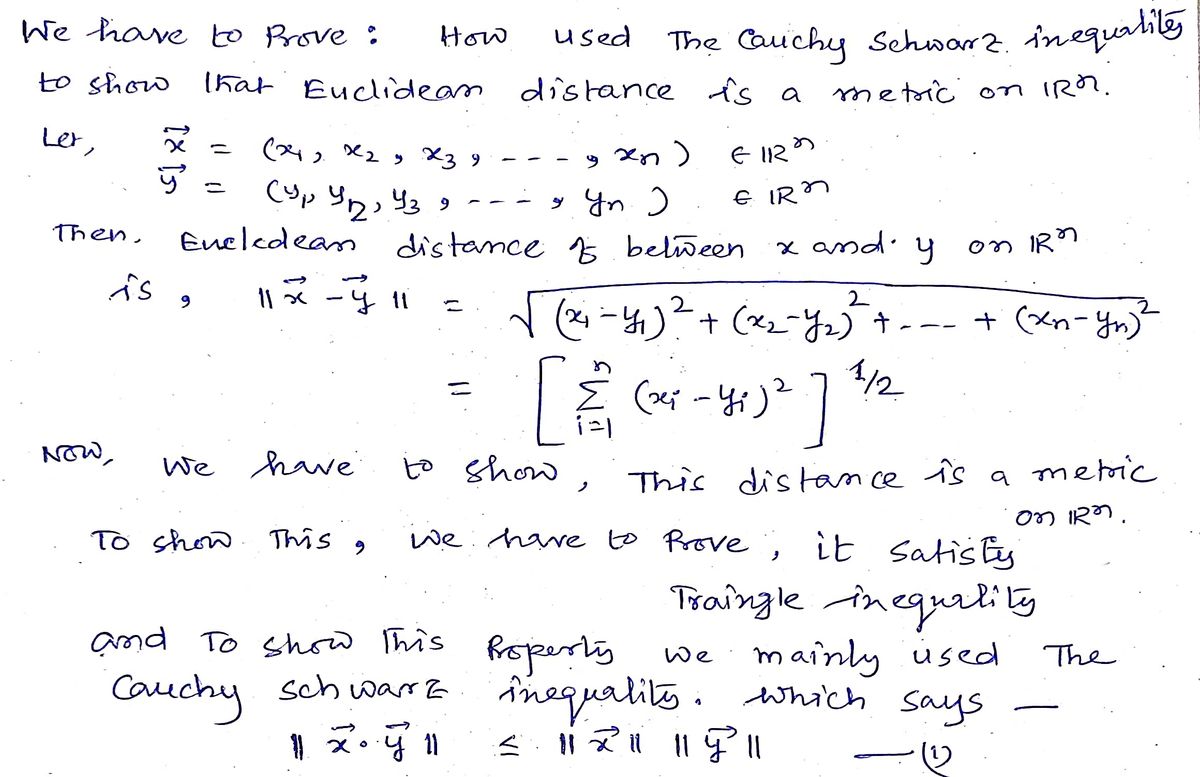 We have to Prove : How used The Cauchy Schwarz inequality
to show that Euclidean distance is a metric on IRⁿ.
Let, x⃗ = (x₁, x₂, x₃, ---, xn) ∈ IRⁿ
y⃗ = (y₁, y₂, y₃, ---, yn) ∈ IRⁿ
Then, Eucledean distance between x and y on IRⁿ
is, ||x⃗ - y⃗|| = √(x₁-y₁)² + (x₂-y₂)² + --- + (xn-yn)²
= [ n Σ i=1 (xi - yi)² ] 1/2
Now, we have to show, This distance is a metric
on IRⁿ.
To show This, we have to Prove, it satisfy
Traingle inequality
and To show This Property we mainly used The
Cauchy schwarz inequality. which says —
|| x⃗ · y⃗ || ≤ || x⃗ || || y⃗ || — (1)